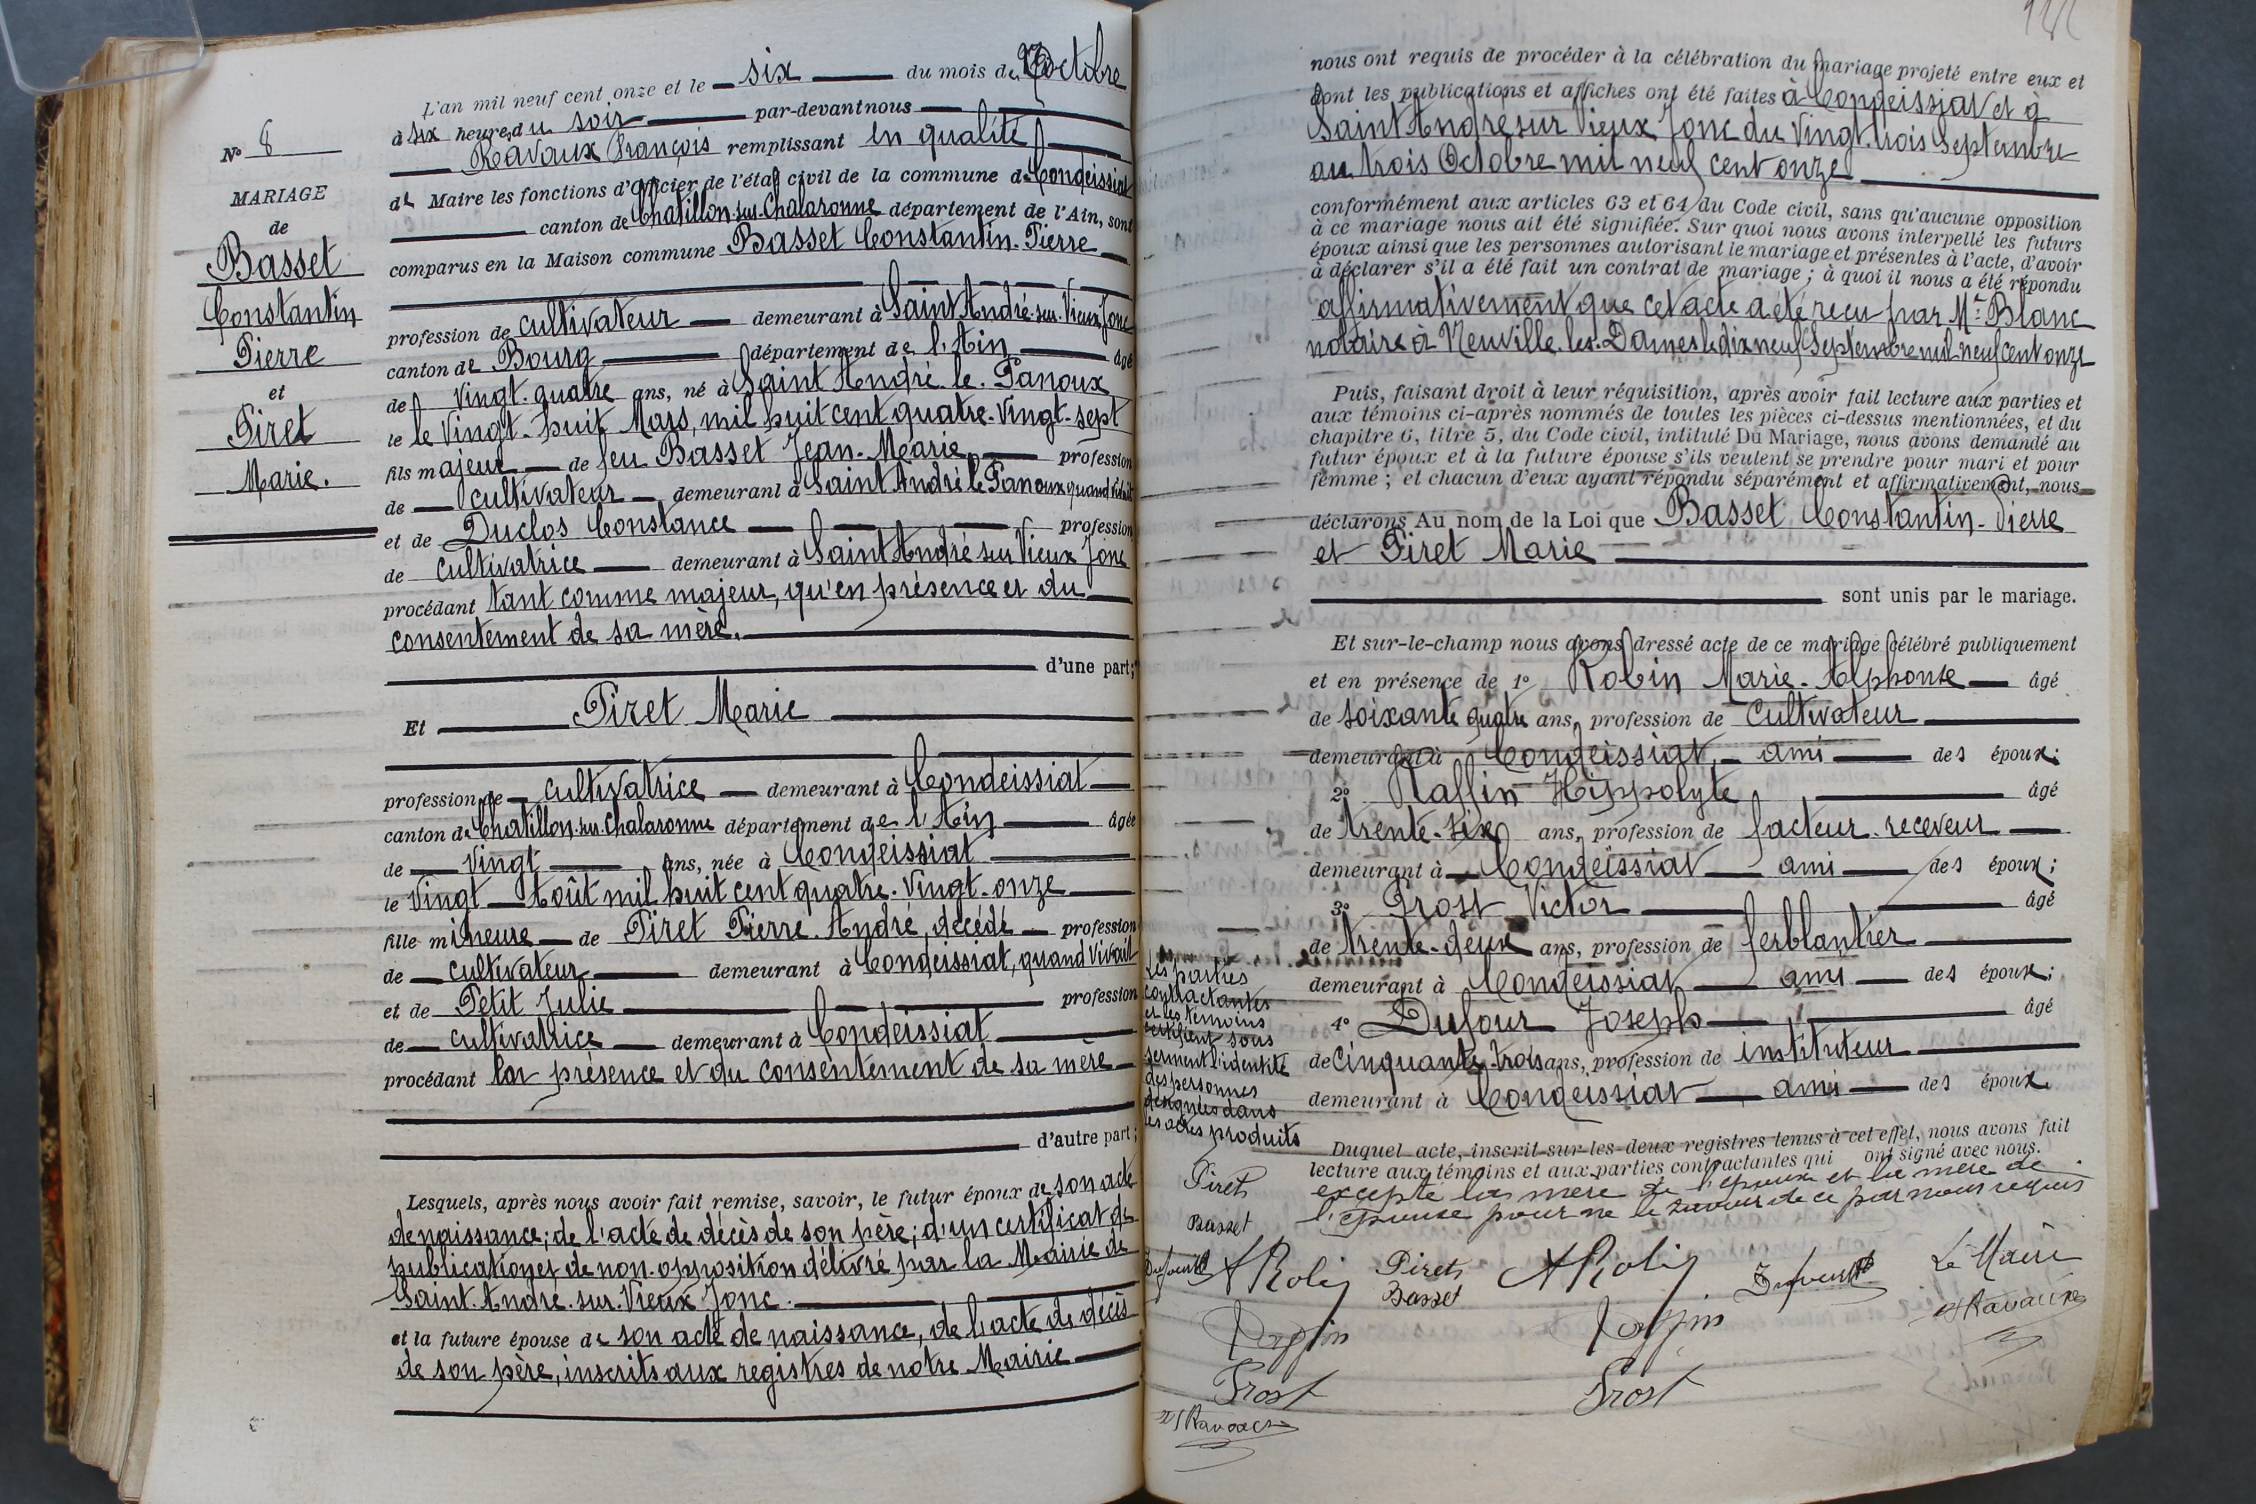 N° 8
MARIAGE
de
Basset
Constantin
Pierre
et
Piret
Marie.
L'an mil neuf cent onze et le six du mois de Octobre
à six heures du soir par-devant nous
Ravaux François remplissant en qualité
de Maire les fonctions d'Officier de l'état civil de la commune de Condeissiat
canton de Chatillon-sur-Chalaronne département de l'Ain, sont
comparus en la Maison commune Basset Constantin-Pierre
profession de cultivateur demeurant à Saint André-sur-Vieux Jonc
canton de Bourg département de l'Ain âgé
de vingt-quatre ans, né à Saint André-le-Panoux
le le vingt-huit Mars, mil huit cent quatre-vingt-sept
fils majeur de feu Basset Jean-Marie, profession
de cultivateur demeurant à Saint André le Panoux quand vivait
et de Duclos Constance profession
de cultivatrice demeurant à Saint André sur Vieux Jonc
procédant tant comme majeur, qu'en présence et du
consentement de sa mère.
d'une part;
Et Piret Marie
profession de cultivatrice demeurant à Condeissiat
canton de Chatillon-sur-Chalaronne département de l'Ain âgée
de vingt ans, née à Condeissiat
le vingt Août mil huit cent quatre-vingt-onze
fille mineure de Piret Pierre-André, décédé profession
de cultivateur demeurant à Condeissiat, quand vivait
et de Petit Julie profession
de cultivatrice demeurant à Condeissiat
procédant la présence et du consentement de sa mère
d'autre part;
Lesquels, après nous avoir fait remise, savoir, le futur époux de son acte
de naissance; de l'acte de décès de son père; d'un certificat de
publication et de non-opposition délivré par la Mairie de
Saint-André-sur-Vieux Jonc.
et la future épouse de son acte de naissance, de l'acte de décès
de son père, inscrits aux registres de notre Mairie
nous ont requis de procéder à la célébration du mariage projeté entre eux et
dont les publications et affiches ont été faites à Condeissiat et à
Saint André sur Vieux Jonc du vingt-trois Septembre
au trois Octobre mil neuf cent onze
conformément aux articles 63 et 64 du Code civil, sans qu'aucune opposition
à ce mariage nous ait été signifiée. Sur quoi nous avons interpellé les futurs
époux ainsi que les personnes autorisant le mariage et présentes à l'acte, d'avoir
à déclarer s'il a été fait un contrat de mariage; à quoi il nous a été répondu
affirmativement que cet acte a été reçu par Mr Blanc
notaire à Neuville-les-Dames le dix neuf Septembre mil neuf cent onze
Puis, faisant droit à leur réquisition, après avoir fait lecture aux parties et
aux témoins ci-après nommés de toutes les pièces ci-dessus mentionnées, et du
chapitre 6, titre 5, du Code civil, intitulé Du Mariage, nous avons demandé au
futur époux et à la future épouse s'ils veulent se prendre pour mari et pour
femme; et chacun d'eux ayant répondu séparément et affirmativement, nous
déclarons Au nom de la Loi que Basset Constantin-Pierre
et Piret Marie
sont unis par le mariage.
Et sur-le-champ nous avons dressé acte de ce mariage célébré publiquement
et en présence de 1° Robin Marie-Alphonse âgé
de soixante quatre ans, profession de cultivateur
demeurant à Condeissiat, ami des époux;
2° Raffin Hippolyte âgé
de trente-six ans, profession de facteur-receveur
demeurant à Condeissiat ami des époux;
3° Prost Victor âgé
de trente-deux ans, profession de ferblantier
demeurant à Condeissiat ami des époux;
4° Dufour Joseph âgé
de cinquante-trois ans, profession de instituteur
demeurant à Condeissiat ami des époux
Duquel acte, inscrit sur les deux registres tenus à cet effet, nous avons fait
lecture aux témoins et aux parties contractantes qui ont signé avec nous.
excepté la mère de l'époux et la mère de
l'épouse pour ne le savoir de ce par nous requis
Les parties
contractantes
et les témoins
certifient sous
serment l'identité
des personnes
désignées dans
les actes produits
Piret
Basset
Dufour ARobin Piret ARobin Dufour Le Maire
Basset Ravaux
Raffin Raffin
Prost Prost
Ravaux